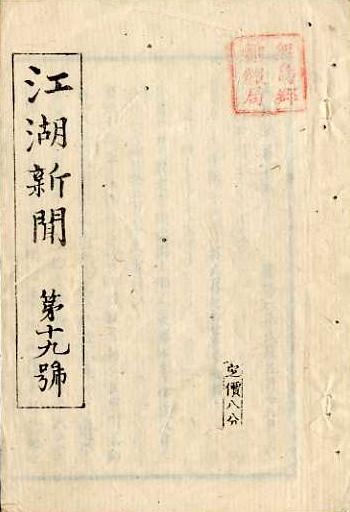 江湖新聞 第十九號
定價八分